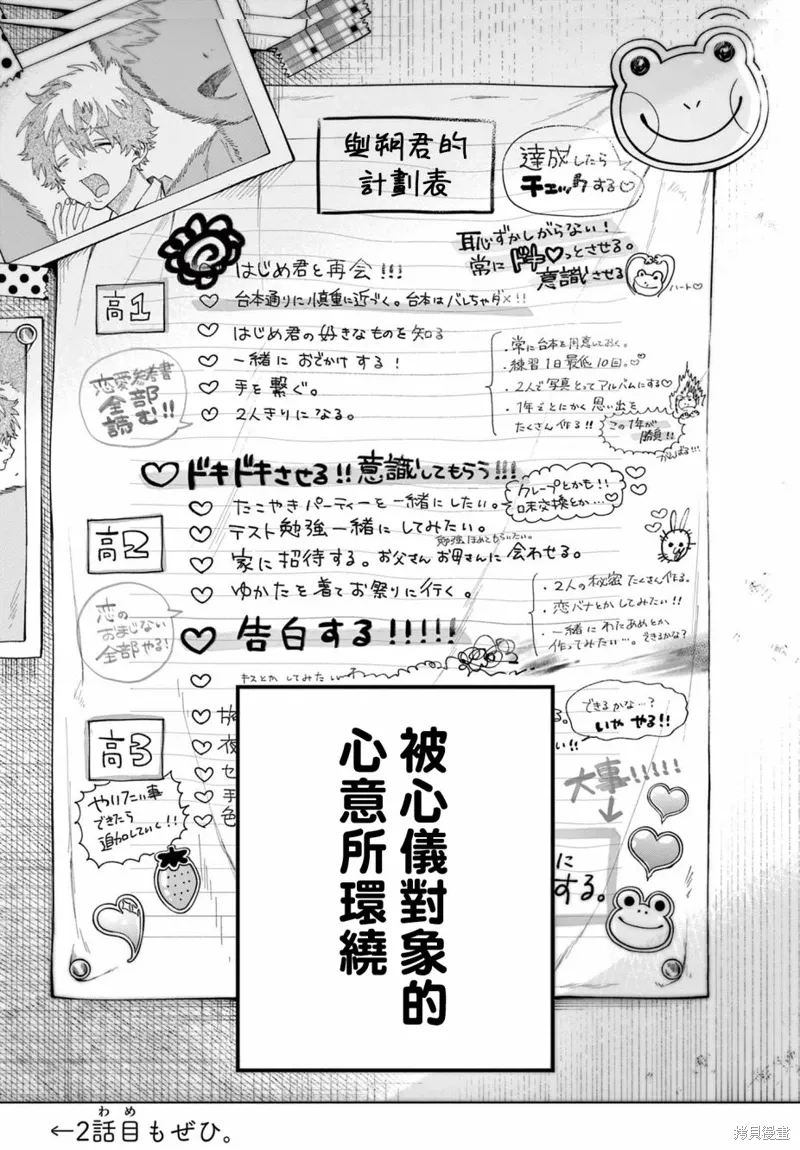 與朔君的
計劃表
達成したら
チェックする♡
恥ずかしがらない!
常にドキ♡っとさせる。
意識させる
ハート♡
はじめ君と再会!!!
高1
♡ 台本通りに慎重に近づく。台本はバレちゃダメ!!
♡ はじめ君の好きなものを知る
♡ 一緒におでかけする!
♡ 手を繋ぐ。
♡ 2人きりになる。
恋愛参考書
全部
読む!!
・常に台本を用意しておく。
・練習1日最低10回。♡
・2人で写真とってアルバムにする♡
・1年でとにかく思い出を
たくさん作る!!
この1年が
勝負!!
がんばる!!!
♡ ドキドキさせる!!意識してもらう!!!
♡ たこやきパーティーを一緒にしたい。
クレープとかも!!
味交換とか…♡
高2
♡ テスト勉強一緒にしてみたい。
勉強ほめてもらいたい。
♡ 家に招待する。お父さんお母さんに会わせる。
♡ ゆかたを着てお祭りに行く。
恋の
おまじない
全部やる!
・2人の秘密たくさん作る。
・恋バナとかしてみたい!!
・一緒にわたあめとか
作ってみたい…。できるかな?
♡ 告白する!!!!!
キスとかしてみたい
高3
できるかな…?
いややる!!
い!!
夜
セ
手
色
やりたい事
できたら
追加していく!!
大事!!!!!
に
する。
被心儀對象的
心意所環繞
わめ
←2話目もぜひ。
拷貝漫畫